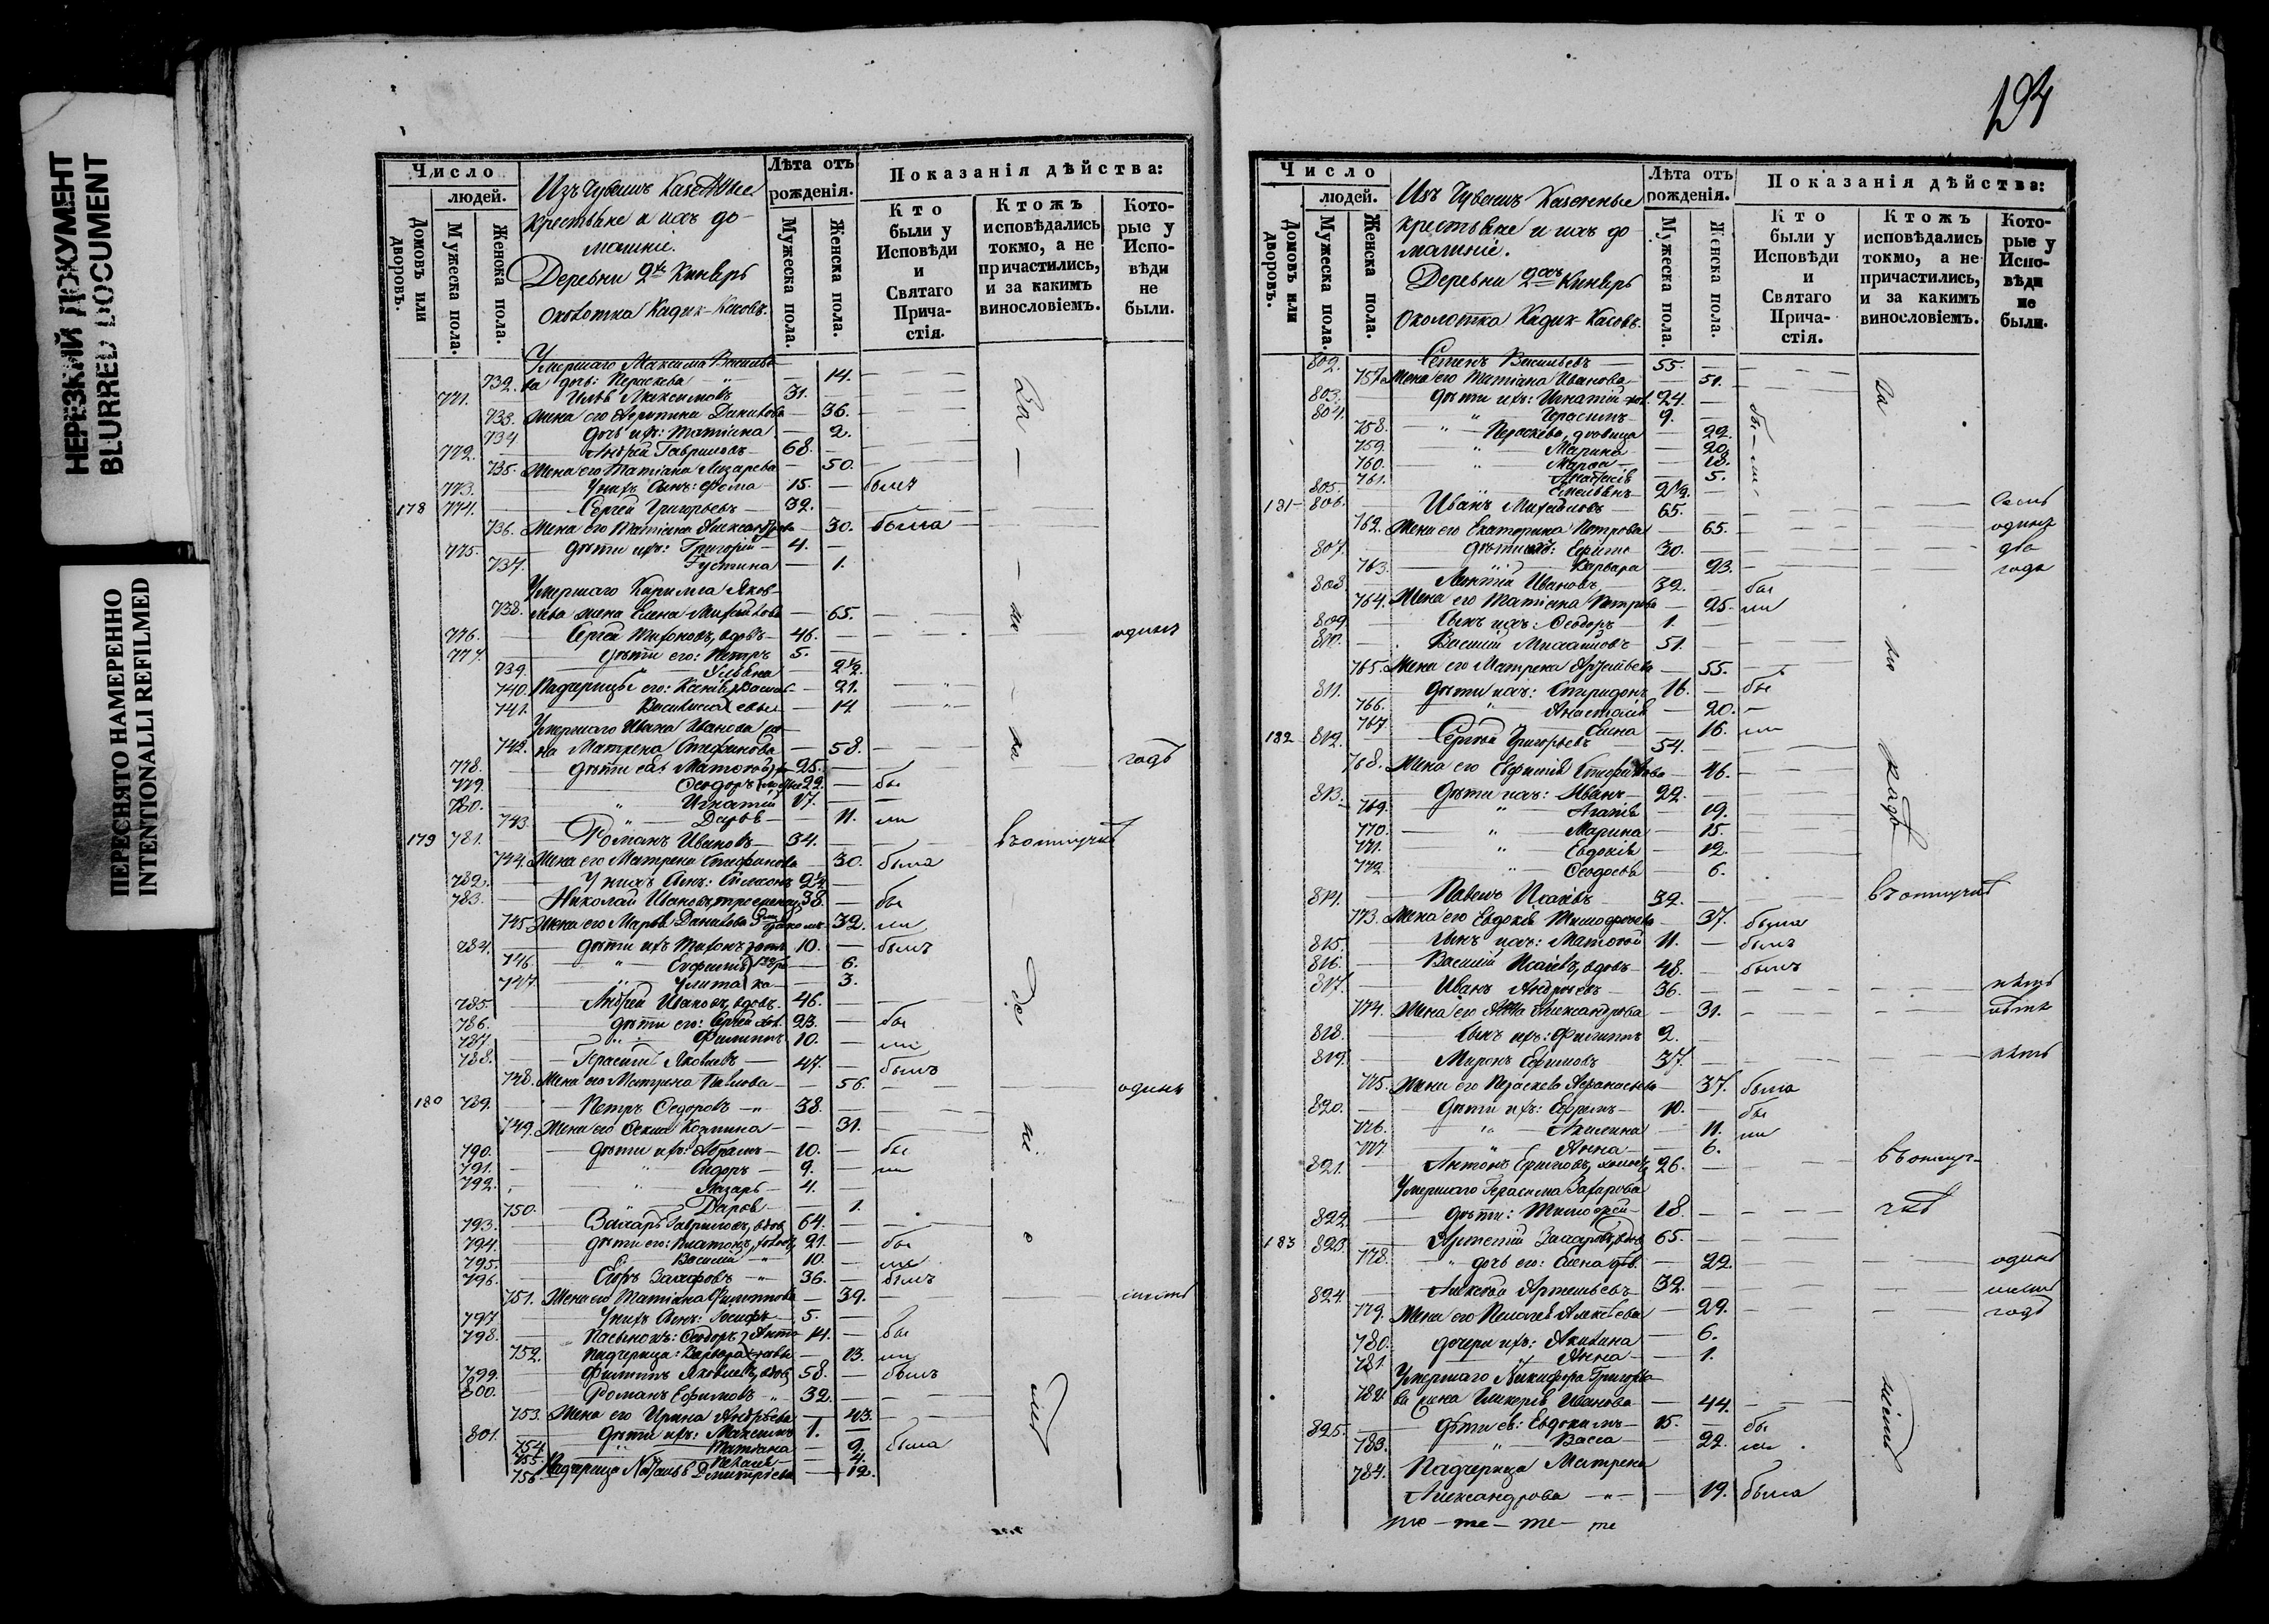 НЕРЕЗКИЙ ДОКУМЕНТ
BLURRED DOCUMENT
ПЕРЕСНЯТО НАМЕРЕННО
INTENTIONALLI REFILMED
Число
людей.
Домовъ или дворовъ.
Мужеска пола.
Женска пола.
Изъ Чувашъ Казенные
крестьяне и ихъ до-
машніе.
Деревни 2хъ Кинеръ
околотка Кадик-Касовъ.
Лѣта отъ рожденія.
Мужеска пола.
Женска пола.
Показанія дѣйства:
Кто были у Исповѣди и Святаго Причастія.
Ктожъ исповѣдались токмо, а не причастились, и за какимъ винословіемъ.
Которые у Исповѣди не были.
Умершаго Максима Василье-
732. ва дочь: Параскева 14.
771. Илья Максимовъ 31.
733. Жена его Агрипина Данилова 36.
734 дочь ихъ: Татіана 2.
772. Андрей Гавриловъ 68.
735. Жена его Татіана Лазарева 50.
773. У нихъ сынъ: Фома 15. былъ
178 774. Сергей Григорьевъ 32.
736. Жена его Татіана Александрова 30. была
775. дѣти ихъ: Григорій 4.
737. Густина 1.
Умершаго Кирилла Яков-
738. лева жена Елена Михайлова 65.
776. Сергей Тихоновъ, вдовъ 46. одинъ
777. дѣти его: Петръ 5.
739. Ульяна 2½
740. Падчерицы его: 21.
741. Василиса 14
Умершаго Ивана Иванова же-
742. на Матрена Стефанова 58. годъ
778. дѣти ея: Матвей 25.
779. Ѳеодоръ 22. бы
780. Игнатій 17.
743. Дарья 11. ли
179 781. Романъ Ивановъ 34. въ отлучкѣ
744. Жена его Матрена Стефанова 30. была
782. У нихъ сынъ: Симеонъ 2½
783. Николай Ивановъ 38. бы
745. Жена его Марья Данилова 32. ли
784. дѣти ихъ Тихонъ 10. былъ
746. Евфимія 6.
747. Улита 3.
785. Андрей Ивановъ, вдовъ 46.
786. дѣти его: Сергей хол. 23. бы
787. Филиппъ 10. ли
788. Герасимъ Яковлевъ 47. былъ
748. Жена его Матрена Павлова 56. одинъ
180 789. Петръ Ѳедоровъ 38.
749. Жена его Ѳекла Козмина 31.
790. дѣти ихъ: Абрамъ 10. бы
791. Сидоръ 9. ли
792. Лазарь 4.
750. Дарья 1.
793. Захаръ Гавриловъ, вдовъ 64.
794. дѣти его: Платонъ, холост 21. бы
795. Василій 10. ли
796. Егоръ Захаровъ 36. былъ
751. Жена его Татіана Филиппова 39.
797 У нихъ сынъ: Іосифъ 5.
798. Пасынокъ: Ѳеодоръ 14. бы
752. Падчерица: Варвара 13. ли
799. Филиппъ Яковлевъ, вдовъ 58. былъ
800. Романъ Ефимовъ 32.
753. Жена его Ирина Андрѣева 43.
801. дѣти ихъ: Максимъ 1.
754. Татіана 9. была
755. 4.
756. Падчерица Наталья Дмитріева 12.
194
Число
людей.
Домовъ или дворовъ.
Мужеска пола.
Женска пола.
Изъ Чувашъ Казенные
крестьяне и ихъ до-
машніе.
Деревни 2хъ Кинеръ
околотка Кадик-Касовъ.
Лѣта отъ рожденія.
Мужеска пола.
Женска пола.
Показанія дѣйства:
Кто были у Исповѣди и Святаго Причастія.
Ктожъ исповѣдались токмо, а не причастились, и за какимъ винословіемъ.
Которые у Исповѣди не были.
802. Семенъ Васильевъ 55.
757. Жена его Татіана Иванова 51.
803. дѣти ихъ: Игнатій хол. 24.
804. Герасимъ 9.
758. Параскева, дѣвица 22.
759. Марина 20.
760. Марѳа 18.
761. Анастасія 5.
805. Емельянъ 2½.
181 806. Иванъ Михайловъ 65.
762. Жена его Екатерина Петрова 65. одинъ
807. дѣти ихъ: 30. два
763. Варвара 23. года
808 Ивановъ 32. бы
764. Жена его Татіана Петрова 25. ли
809 сынъ ихъ: Ѳеодоръ 1.
810. Василій Михайловъ 51.
765. Жена его Матрена 55.
811. дѣти ихъ: Спиридонъ 16. бы
766. Анастасія 20.
767 Елена 16. ли
182 812. Сергей Григорьевъ 54.
768. Жена его Евфимія 46.
813. дѣти ихъ: Иванъ 22.
769. Агафія 19.
770. Марина 15.
771. Евдокія 12.
772. Ѳеодосья 6.
814. Павелъ Исаевъ 32. въ отлучкѣ
773. Жена его Евдокія Тимофеева 37. была
815. сынъ ихъ: Матвей 11. былъ
816. Василій Исаевъ, вдовъ 48. былъ
817. Иванъ Андреевъ 36. пять
774. Жена его Анна Александрова 31. лѣтъ
818. сынъ ихъ: Филиппъ 2.
819. Миронъ Ефимовъ 37. пять
775. Жена его Параскева Афанасьева 37. была
820. дѣти ихъ: Ефремъ 10. бы
776. Акилина 11. ли
777. Анна 6.
821. Антонъ Ефимовъ, холост 26. въ отлуч-
Умершаго Герасима Захарова
822. дѣти: Тимофей 18. кѣ
183 823. Артемій Захаровъ, вдов 65.
778. дочь его: Елена 22. одинъ
824. Алексей Артемьевъ 32.
779. Жена его Пелагея Алексеева 29. годъ
780. дочери ихъ: Акилина 6.
781. Анна 1.
Умершаго Никифора Григорье-
782. ва жена Гликерія Иванова 44.
825. дѣти ея: Евдокимъ 15. бы
783. Васса 22. ли
784. Падчерица Матрена
Александрова 19. была